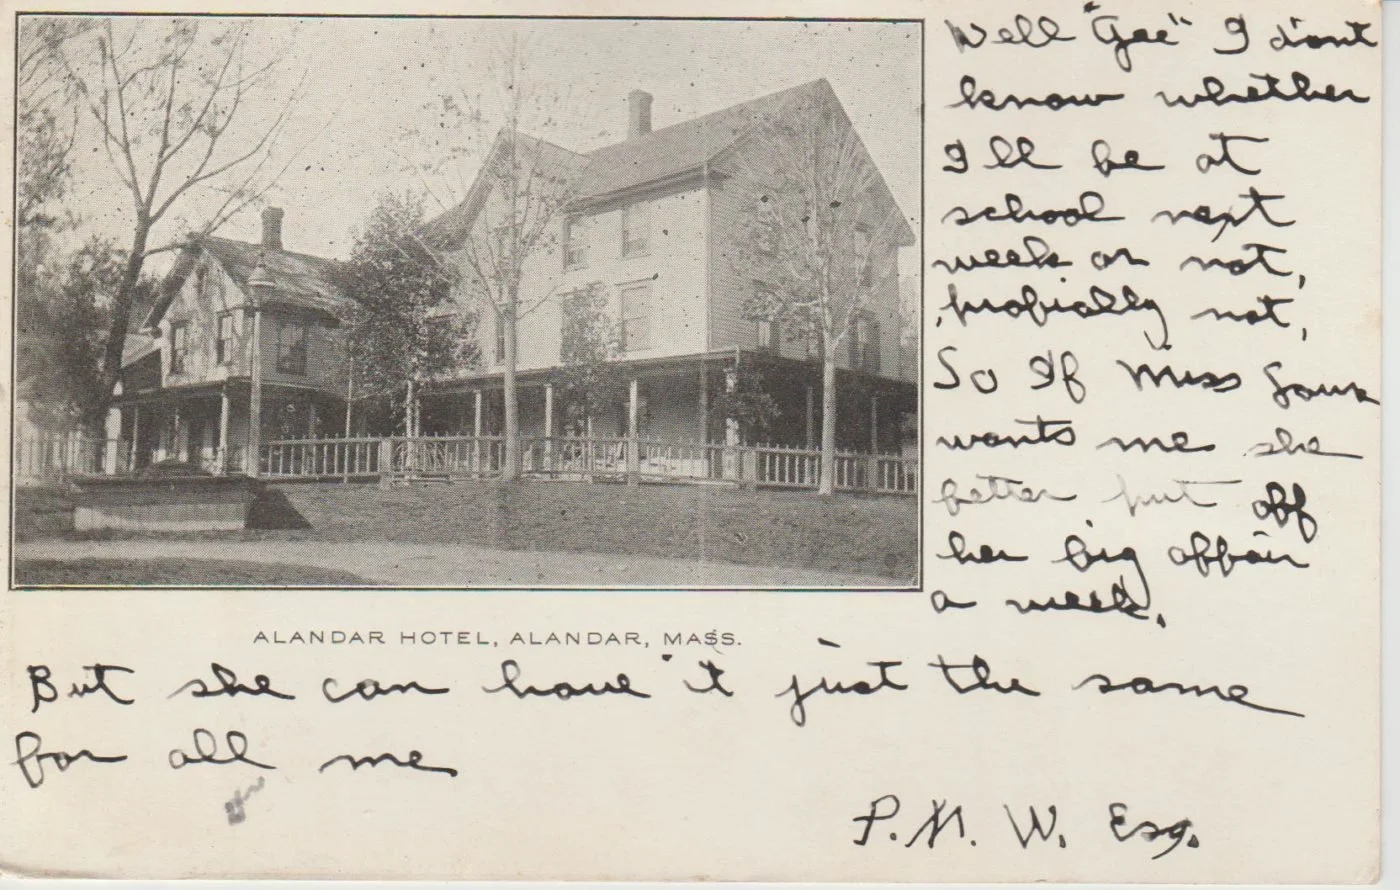 Well "Gee" I dont
know whether
I'll be at
school next
week or not,
probially not,
So If Miss
wants me she
better put off
her big affair
a week.
ALANDAR HOTEL, ALANDAR, MASS.
But she can have it just the same
for all me
P. N. W. Esq.